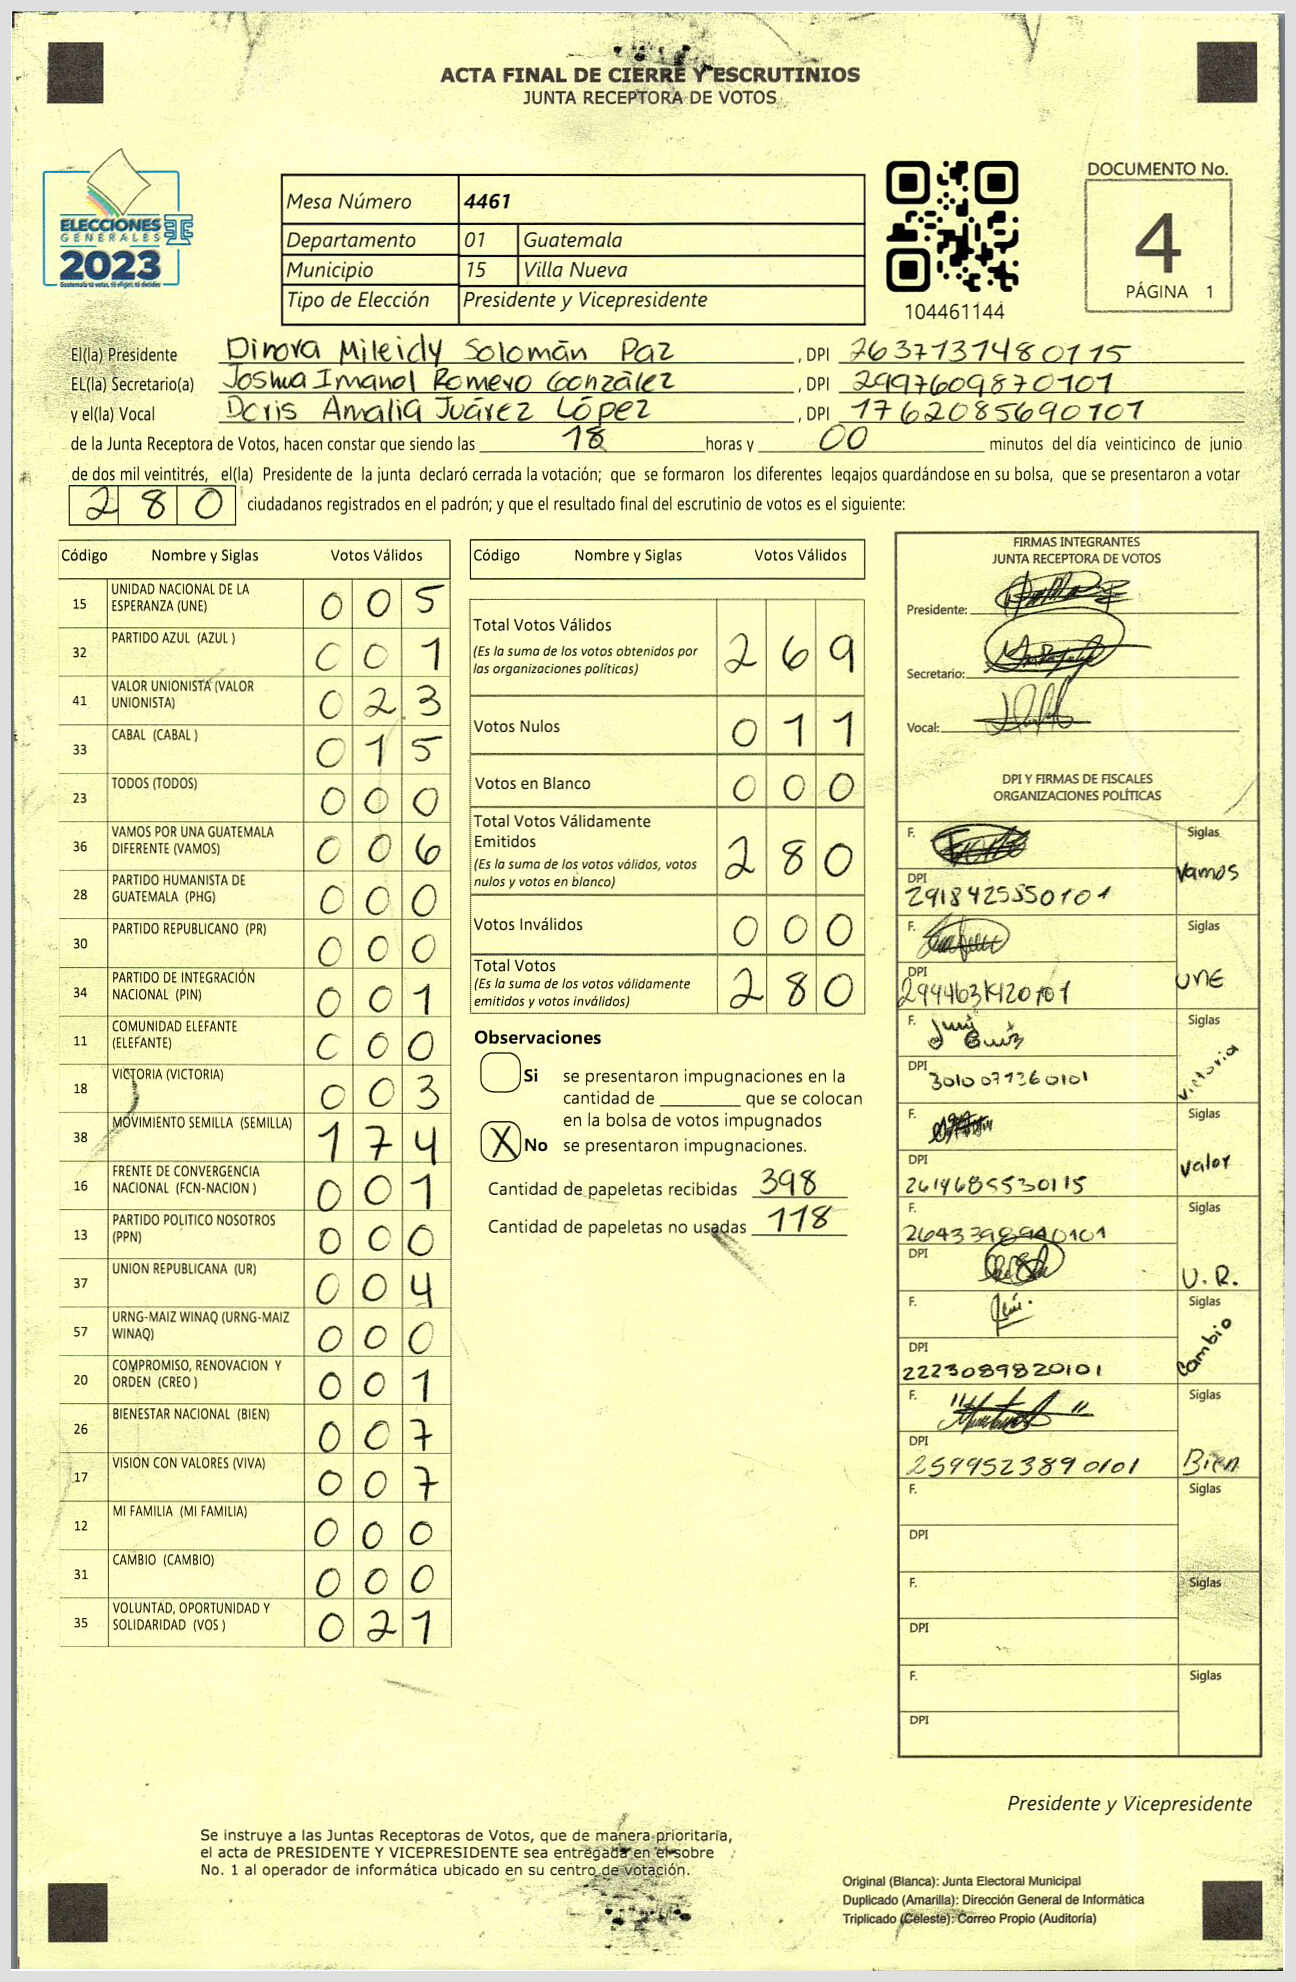 ACTA FINAL DE CIERRE Y ESCRUTINIOS
JUNTA RECEPTORA DE VOTOS
ELECCIONES
GENERALES
2023
Guatemala tú votas, tú eliges, tú decides
TSE
Mesa Número 4461
Departamento 01 Guatemala
Municipio 15 Villa Nueva
Tipo de Elección Presidente y Vicepresidente
104461144
DOCUMENTO No.
4
PÁGINA 1
El(la) Presidente Dinora Mileidy Solomán Paz , DPI 2637131480115
EL(la) Secretario(a) Joshua Imanol Romero González , DPI 2997609870101
y el(la) Vocal Doris Amalia Juárez López , DPI 1762085690101
de la Junta Receptora de Votos, hacen constar que siendo las 18 horas y 00 minutos del día veinticinco de junio
de dos mil veintitrés, el(la) Presidente de la junta declaró cerrada la votación; que se formaron los diferentes legajos guardándose en su bolsa, que se presentaron a votar
280 ciudadanos registrados en el padrón; y que el resultado final del escrutinio de votos es el siguiente:
Código Nombre y Siglas Votos Válidos
15 UNIDAD NACIONAL DE LA ESPERANZA (UNE) 005
32 PARTIDO AZUL (AZUL ) 001
41 VALOR UNIONISTA (VALOR UNIONISTA) 023
33 CABAL (CABAL ) 015
23 TODOS (TODOS) 000
36 VAMOS POR UNA GUATEMALA DIFERENTE (VAMOS) 006
28 PARTIDO HUMANISTA DE GUATEMALA (PHG) 000
30 PARTIDO REPUBLICANO (PR) 000
34 PARTIDO DE INTEGRACIÓN NACIONAL (PIN) 001
11 COMUNIDAD ELEFANTE (ELEFANTE) 000
18 VICTORIA (VICTORIA) 003
38 MOVIMIENTO SEMILLA (SEMILLA) 174
16 FRENTE DE CONVERGENCIA NACIONAL (FCN-NACION ) 001
13 PARTIDO POLITICO NOSOTROS (PPN) 000
37 UNION REPUBLICANA (UR) 004
57 URNG-MAIZ WINAQ (URNG-MAIZ WINAQ) 000
20 COMPROMISO, RENOVACION Y ORDEN (CREO ) 001
26 BIENESTAR NACIONAL (BIEN) 007
17 VISION CON VALORES (VIVA) 007
12 MI FAMILIA (MI FAMILIA) 000
31 CAMBIO (CAMBIO) 000
35 VOLUNTAD, OPORTUNIDAD Y SOLIDARIDAD (VOS ) 021
Código Nombre y Siglas Votos Válidos
Total Votos Válidos 269
(Es la suma de los votos obtenidos por
las organizaciones políticas)
Votos Nulos 011
Votos en Blanco 000
Total Votos Válidamente
Emitidos 280
(Es la suma de los votos válidos, votos
nulos y votos en blanco)
Votos Inválidos 000
Total Votos 280
(Es la suma de los votos válidamente
emitidos y votos inválidos)
Observaciones
Si se presentaron impugnaciones en la
cantidad de ________ que se colocan
en la bolsa de votos impugnados
X No se presentaron impugnaciones.
Cantidad de papeletas recibidas 398
Cantidad de papeletas no usadas 118
FIRMAS INTEGRANTES
JUNTA RECEPTORA DE VOTOS
Presidente:
Secretario:
Vocal:
DPI Y FIRMAS DE FISCALES
ORGANIZACIONES POLÍTICAS
F. Siglas
Vamos
DPI
2918425550101
F. Siglas
UNE
DPI
F. Siglas
Victoria
DPI 3010071360101
F. Siglas
Valor
DPI
2614685530115
F. Siglas
2643398940101
DPI
U.R.
F. Siglas
Cambio
DPI
2223089820101
F. Siglas
DPI
2599523890101 Bien
F. Siglas
DPI
F. Siglas
DPI
F. Siglas
DPI
Presidente y Vicepresidente
Se instruye a las Juntas Receptoras de Votos, que de manera prioritaria,
el acta de PRESIDENTE Y VICEPRESIDENTE sea entregada en el sobre
No. 1 al operador de informática ubicado en su centro de votación.
Original (Blanca): Junta Electoral Municipal
Duplicado (Amarilla): Dirección General de Informática
Triplicado (Celeste): Correo Propio (Auditoría)